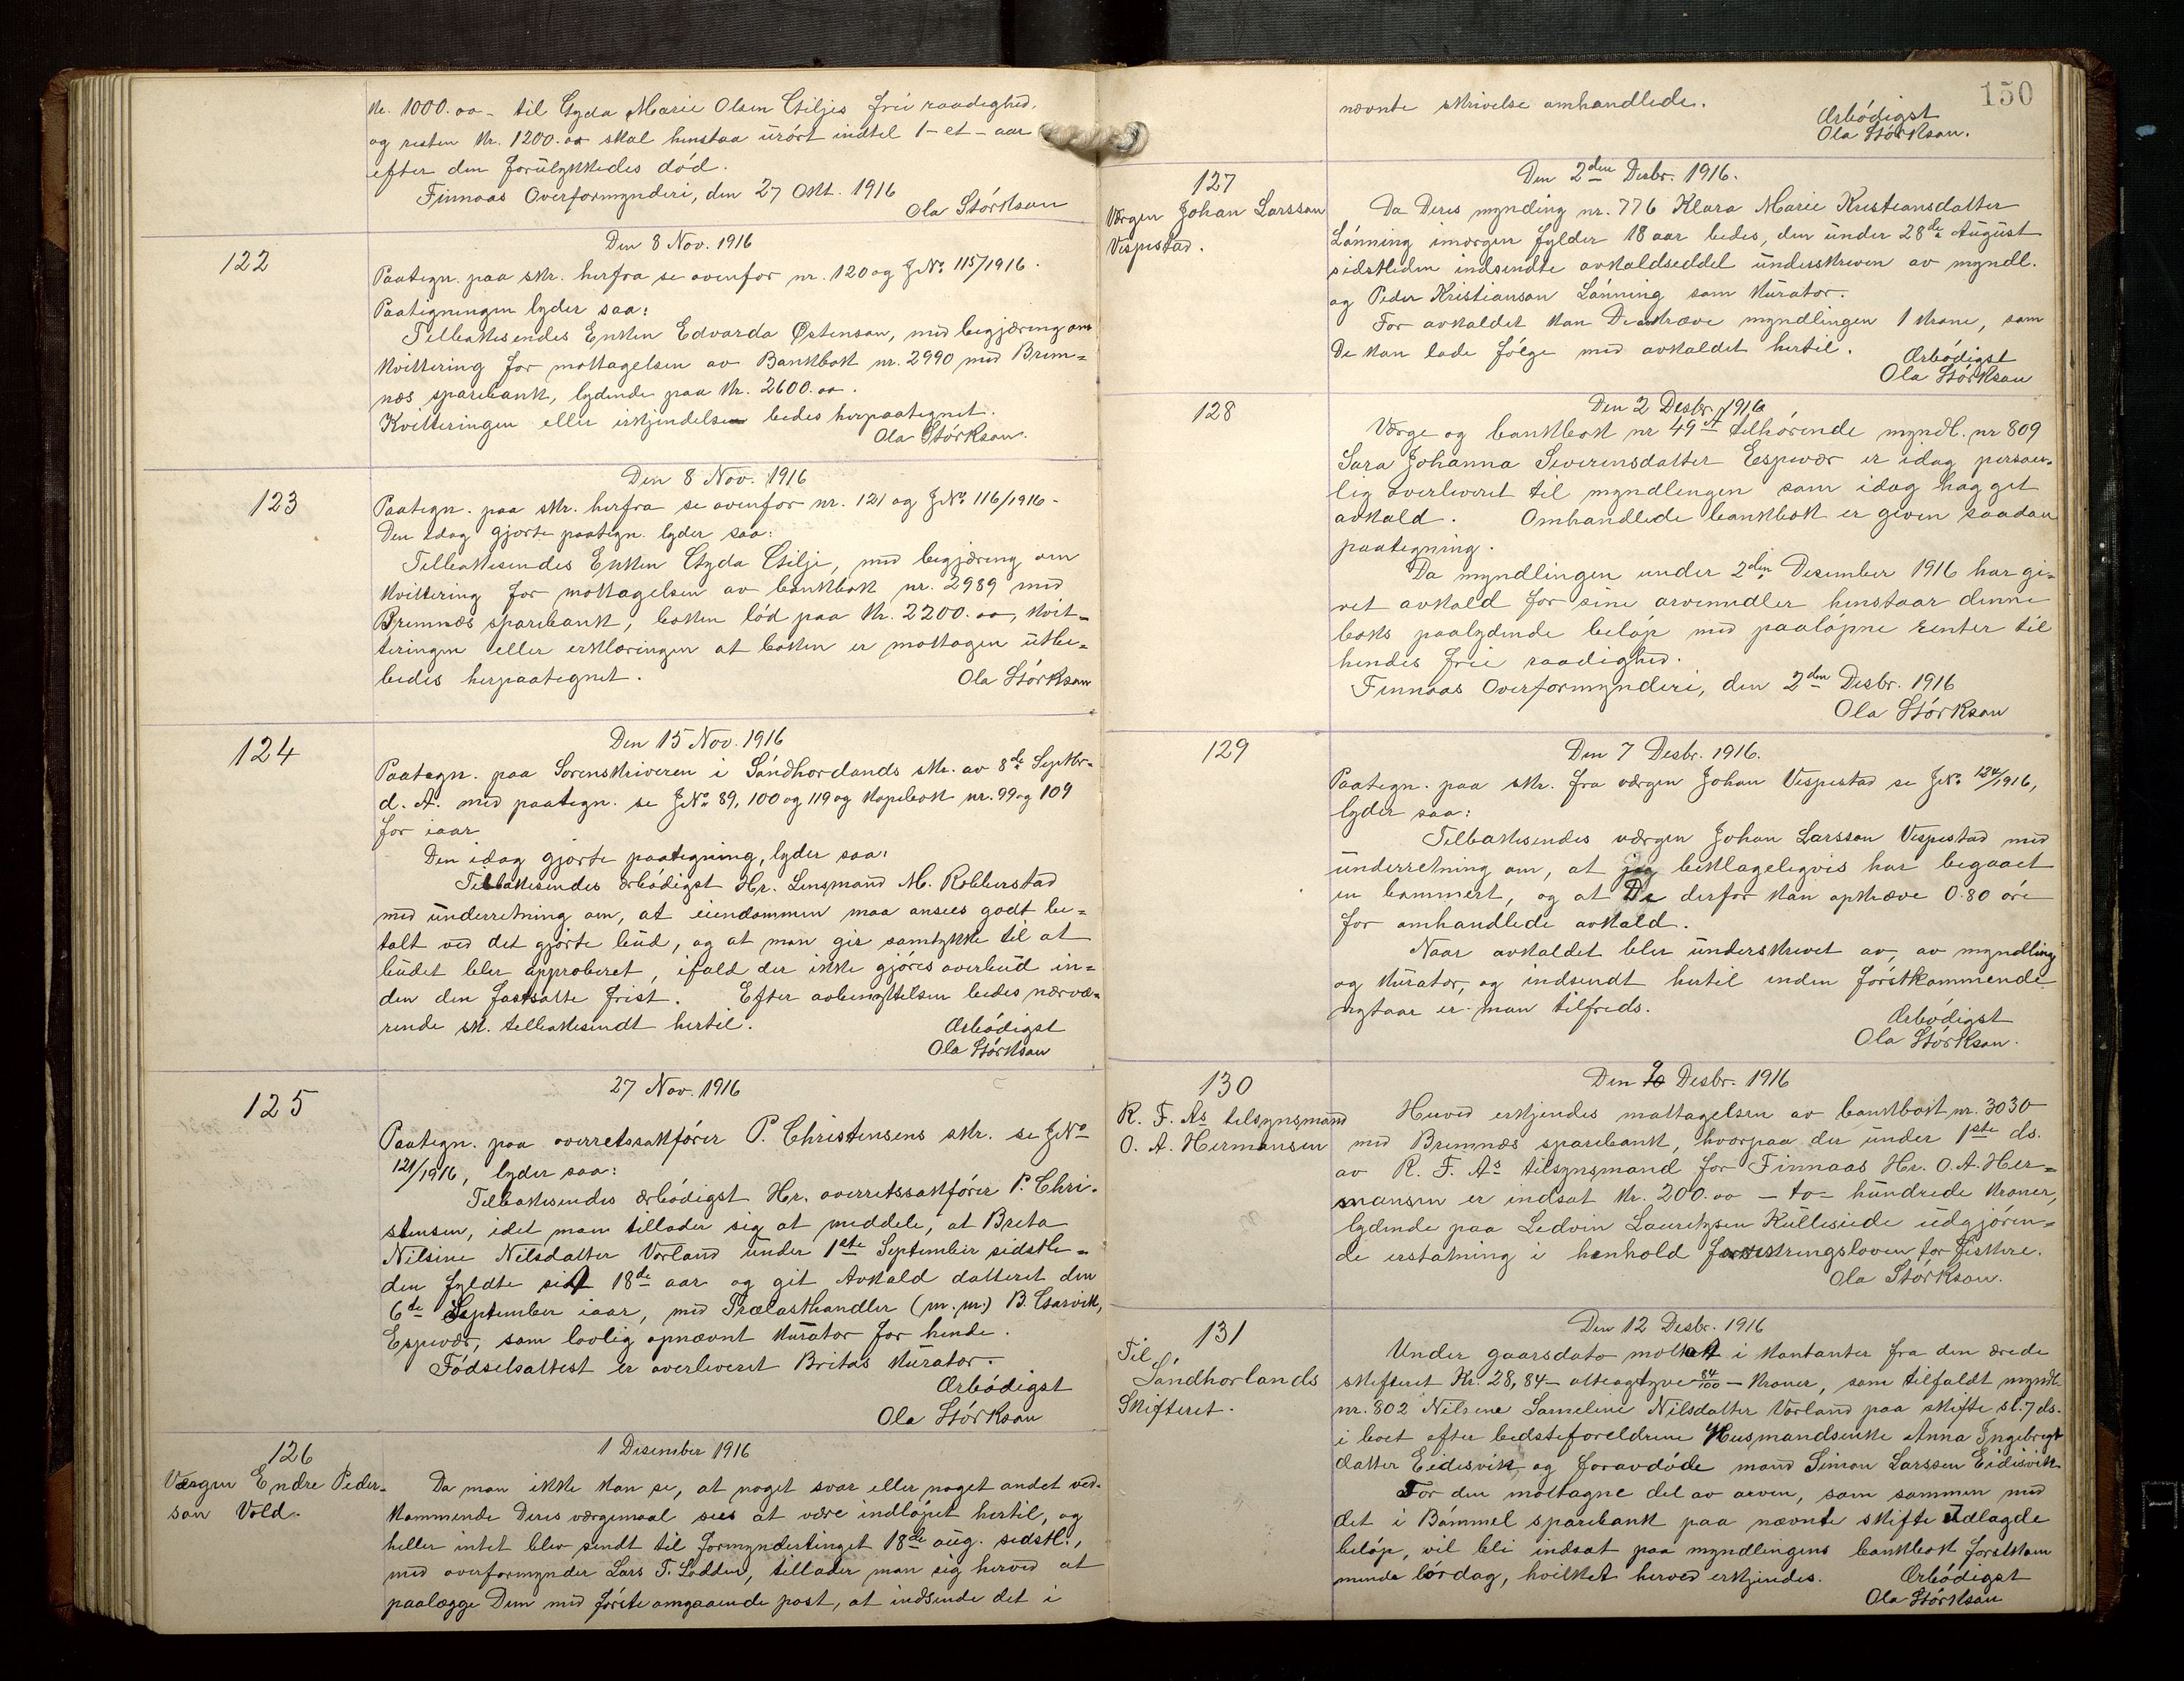 kr. 1000.oo - til Gyda Marie Olsen Giljes frie raadighed,
og resten kr. 1200.oo skal henstaa urørt indtil 1 - et - aar
efter den forulykkedes død.
Finnaas Overformynderi, den 27 Okt. 1916
Ola Størkson
122
Den 8 Nov. 1916
Paategn. paa skr. herfra se ovenfor nr. 120 og JNo 115/1916.
Paategningen lyder saa:
Tilbakesendes Enken Edvarda Østenson, med begjæring om
kvittering for mottagelsen av Bankbok nr. 2990 med Brem=
næs sparebank, lydende paa kr. 2600.oo.
Kvitteringen eller erkjendelsen bedes herpaategnet.
Ola Størkson.
123
Den 8 Nov. 1916
Paategn. paa skr. herfra se ovenfor nr. 121 og JNo 116/1916 -
Den idag gjorte paategn. lyder saa:
Tilbakesendes Enken Gyda Gilje, med begjæring om
kvittering for mottagelsen av bankbok nr. 2989 med
Bremnæs sparebank, boken lød paa kr. 2200.oo, kvit=
teringen eller erklæringen at boken er mottagen utbe=
bedes herpaategnet.
Ola Størkson
124
Den 15 Nov. 1916
Paategn. paa Sorenskriveren i Søndhordlands skr. av 8de Septbr.
d. A. med paategn. se JNo 89, 100 og 119 og kopibok nr. 99 og 109
for iaar
Den idag gjorte paategning, lyder saa:
Tilbakesendes ærbødigst Hr. Lensmand M. Robberstad
med underretning om, at eiendommen maa ansees godt be=
talt ved det gjorte bud, og at man gir samtykke til at
budet blir approberet, ifald der ikke gjøres overbud in=
den den fastsatte frist. Efter avbenyttelsen bedes nærvæ=
rende sk. tilbakesendt hertil.
Ærbødigst
Ola Størkson
125
27 Nov. 1916
Paategn. paa overretssakfører P. Christensens skr. se JNo
121/1916, lyder saa:
Tilbakesendes ærbødigst Hr. overretssakfører P. Chri.
stensen, idet man tillader sig at meddele, at Breta
Nilsine Nilsdatter Vorland under 1ste September sidstle=
den fyldte sit 18de aar og git Avkald datteret den
6te September iaar, med Trælasthandler (m.m.) B. Gasvik,
Espevær, som lovlig opnævnt kurator for hende.
Fødselsattest er overleveret Britas kurator.
Ærbødigst
Ola Størkson
126
Værgen Endre Peder-
son Vold.
1 Desember 1916
Da man ikke kan se, at noget svar eller noget andet ved-
kommende Deres værgemaal sees at være indløpet hertil, og
heller intet blev sendt til formyndertinget 18de aug. sidstl.,
med overformynder Lars T. Lodden, tillader man sig herved at
paalægge Dem med første omgaaende post, at indsende det i
150
nævnte skrivelse omhandlede.
Ærbødigst
Ola Størkson.
127
Værgen Johan Larsson
Vespestad.
Den 2den Desbr. 1916.
Da Deres mynding nr. 776 Klara Marie Kristiansdatter
Lønning imorgen fylder 18 aar bedes, den under 28de August
sidstleden indsendte avkaldseddel underskreven av myndl.
og Peder Kristianson Lønning som kurator.
For avkaldet kan De avkræve myndlingen 1 krone, som
De kan lade følge med avkaldet hertil.
Ærbødigst
Ola Størkson
128
Den 2 Desbr. 1916
Værge og bankbok nr 49A tilhørende myndl. nr 809
Sara Johanna Severinsdatter Espevær er idag person=
lig overleveret til myndlingen som idag hag get
avkald. Omhandlede bankbok er given saadan
paategning.
Da myndlingen under 2den Desember 1916 har gi=
vet avkald for sine arvemidler henstaar denne
boks paalydende beløp med paaløpne renter til
hendes frie raadighed.
Finnaas Overformynderi, den 2den Desbr. 1916
Ola Størkson
129
Den 7 Desbr. 1916.
Paategn. paa skr. fra værgen Johan Vespestad se JNo 124/1916,
lyder saa:
Tilbakesendes værgen Johan Larsson Vespestad med
underretning om, at jeg beklageligvis har begaaet
en bommert, og at De derfor kan opkræve 0.80 øre
for omhandlede avkald.
Naar avkaldet blir underskrevet av, av myndling
og kurator, og indsendt hertil inden førstkommende
nytaar er man tilfreds.
Ærbødigst
Ola Størkson.
130
R. F. As tilsynsmand
O. A. Hermansen
Den 9 Desbr. 1916
Herved erkjendes mottagelsen av bankbok nr. 3030
med Bremnæs sparebank, hvorpaa der under 1ste ds.
av R. F. As tilsynsmand for Finnaas Hr. O. A. Her=
mansen er indsat kr. 200.oo - to - hundrede kroner,
lydende paa Ledvin Lauritzsen Kulleseide udgjøren=
de erstatning i henhold forsikringsloven for fiskere.
Ola Størkson.
131
Til
Søndhorlands
Skifteret.
Den 12 Desbr. 1916
Under gaarsdato mottat i kontanter fra den ærede
skifteret Kr. 28,84 - otteogtyve 84/100 - kroner, som tilfaldt myndl.
nr. 802 Nilsine Sameline Nilsdatter Vorland paa skifte sl. 7 ds.
i boet efter bedsteforeldrene Husmandsenke Anna Ingebrigt
datter Eidesvik, og foravdøde mand Simon Larssen Eidesvik
For den mottagne del av arven, som sammen med
det i Bømmel sparebank paa nævnte skifte Udlagde
beløp, vil bli indsat paa myndlingens bankbok førstkom
mende lørdag, hvilket herved erkjendes.
Ærbødigst
Ola Størkson